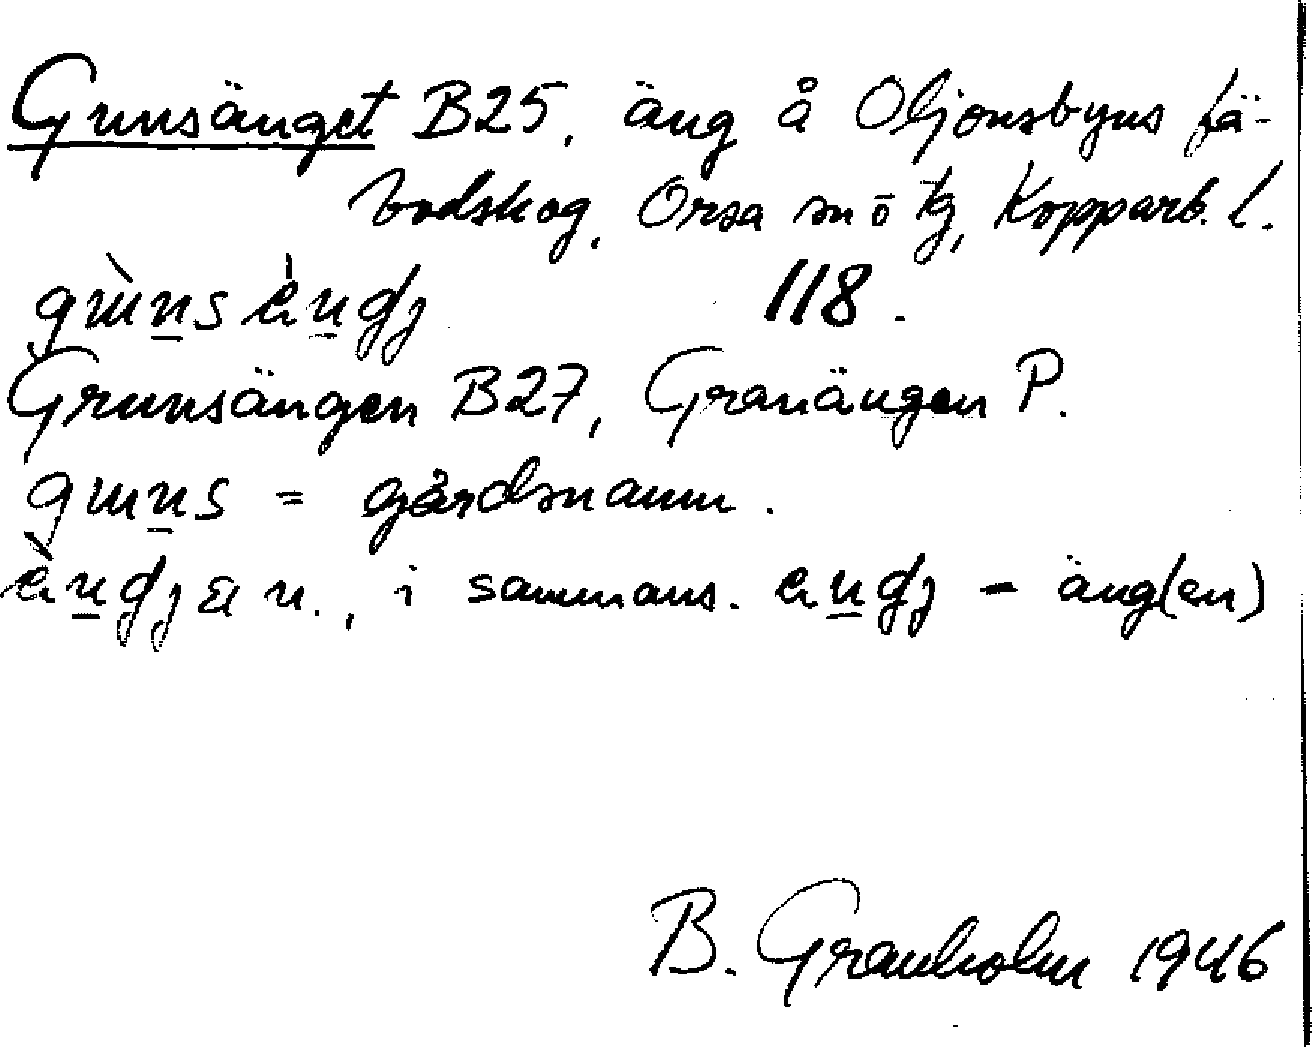 Grunsänget B25, äng å Oljonsbyns fä-
bodskog, Orsa sn o tg, Kopparb. l.
118.
Grunsängen B27, Granängen P.
= gårdsnamn.
i sammans. - äng(en)
B. Granholm 1946